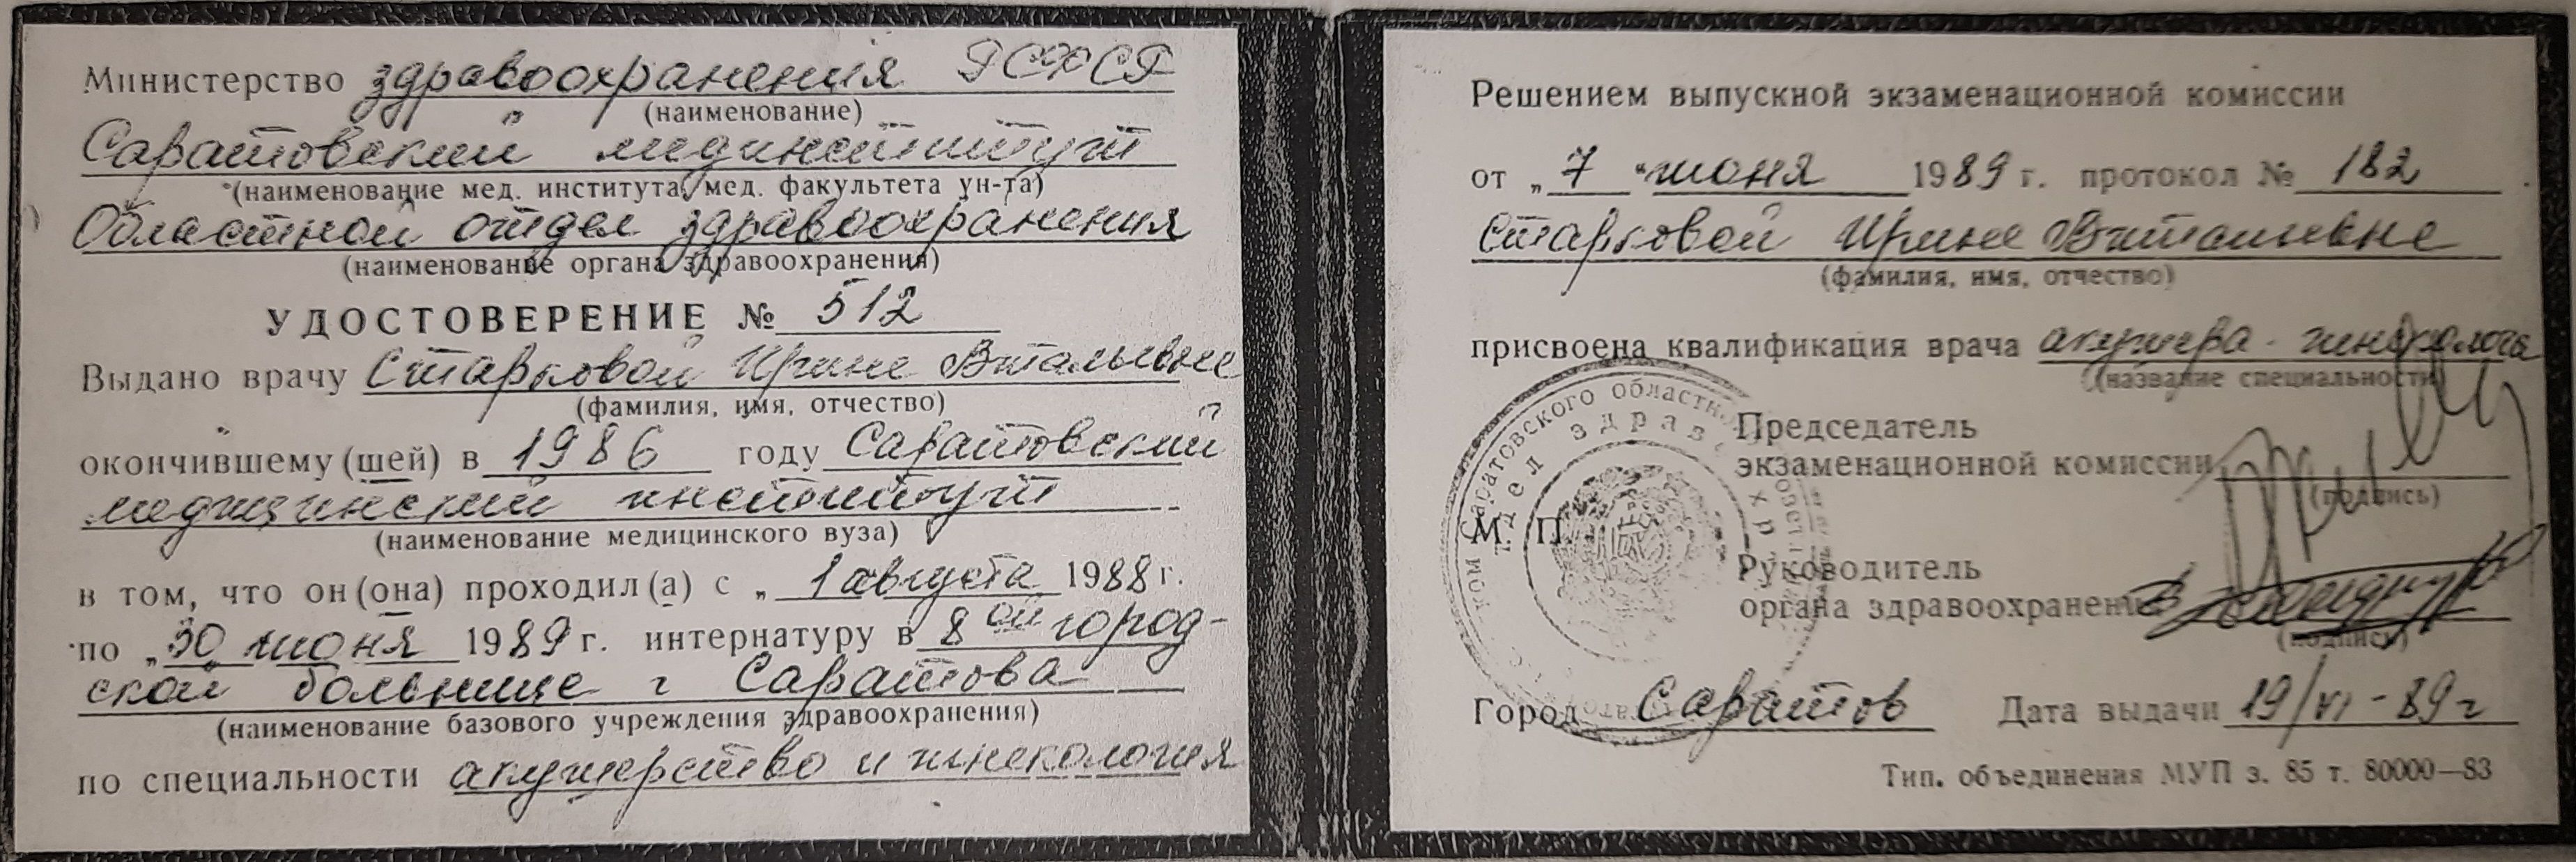 Министерство здравоохранения РСФСР
(наименование)
Саратовский мединститут
(наименование мед. института, мед. факультета ун-та)
Областной отдел здравоохранения
(наименование органа здравоохранения)
УДОСТОВЕРЕНИЕ № 512
Выдано врачу Старковой Ирине Витальевне
(фамилия, имя, отчество)
окончившему (шей) в 1986 году Саратовский
медицинский институт
(наименование медицинского вуза)
в том, что он (она) проходил (а) с „1 августа 1988 г.
по „30 июня 1989 г. интернатуру в 8ой город-
ской больнице г Саратова
(наименование базового учреждения здравоохранения)
по специальности акушерство и гинекология
Решением выпускной экзаменационной комиссии
от „7“ июня 1989 г. протокол № 182
Старковой Ирине Витальевне
(фамилия, имя, отчество)
присвоена квалификация врача акушера-гинеколога
(название специальности)
Председатель
экзаменационной комиссии
(подпись)
М. П.
Руководитель
органа здравоохранения
(подпись)
Город Саратов Дата выдачи 19/VI-89г
Тип. объединения МУП з. 85 т. 80000—83
Саратовского областн
здрав